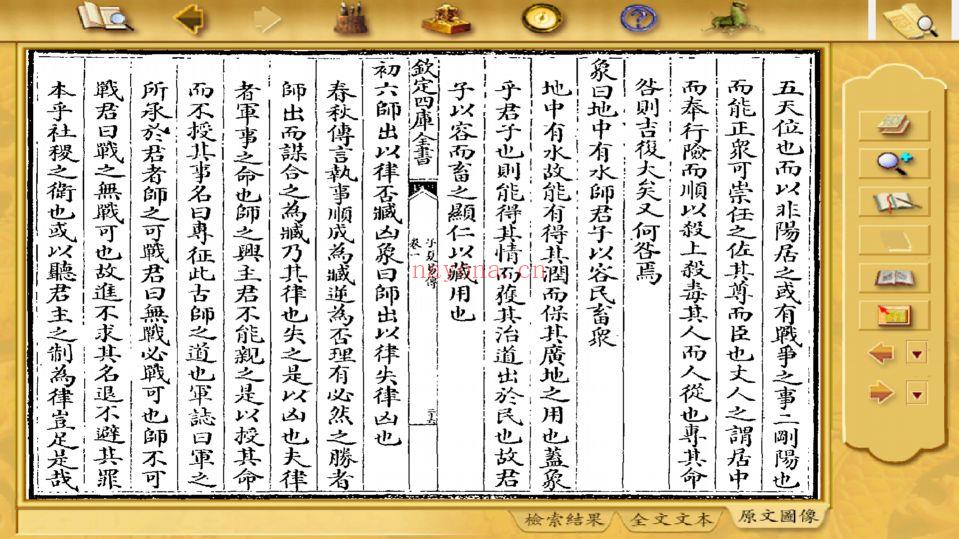 五天位也而以非陽居之或有戰爭之事二剛陽也
而能正衆可崇任之佐其尊而臣也丈人之謂居中
而奉行險而順以殺上殺毒其人而人從也專其命
咎則吉復大矣又何咎焉
象曰地中有水師君子以容民畜衆
地中有水故能有得其潤而保其廣地之用也蓋象
乎君子也則能得其情而獲其治道出於民也故君
子以容而畜之顯仁以藏用也
欽定四庫全書
子夏易傳
卷一
初六師出以律否臧凶象曰師出以律失律凶也
春秋傳言執事順成為臧逆為否理有必然之勝者
師出而謀合之為臧乃其律也失之是以凶也夫律
者軍事之命也師之興主君不能親之是以授其命
而不授其事名曰專征此古師之道也軍誌曰軍之
所承於君者師之可戰君曰無戰必戰可也師不可
戰君曰戰之無戰可也故進不求其名退不避其罪
本乎社稷之衛也或以聽君主之制為律豈足是哉
nayona.cn
檢索結果
全文文本
原文圖像